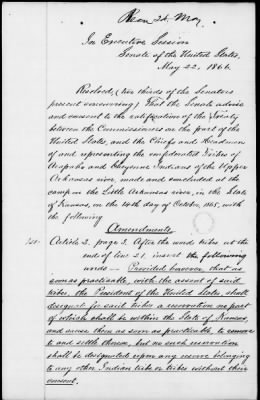 Recd 24. May
In Executive Session
Senate of the United States,
May 22, 1866.
Resolved, (two thirds of the Senators
present concurring) That the Senate advise
and consent to the ratification of the Treaty
between the Commissioners on the part of the
United States, and the Chiefs and Headmen
of and representing the confederated tribes of
Arapaho and Cheyenne Indians of the Upper
Arkansas river, made and concluded at the
camp on the Little Arkansas river, in the State
of Kansas, on the 14th day of October, 1865, with
the following
Amendments
Article 2, page 3. After the word tribes at the
end of line 21, insert the following
words — Provided however, that as
soon as practicable, with the assent of said
tribe, the President of the United States shall
designate for said tribes a reservation, no part
of which shall be within the State of Kansas,
and cause them as soon as practicable, to remove
to and settle thereon, but no such reservation
shall be designated upon any reserve belonging
to any other Indian tribe or tribes without their
consent.